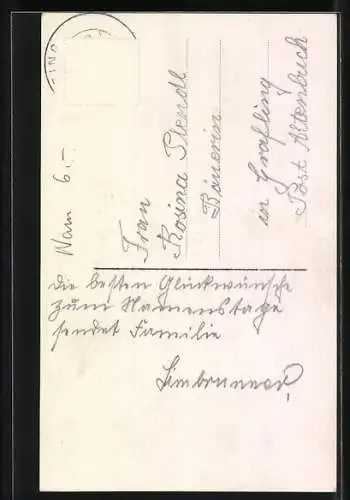 Nam 6.-
Frau
Rosina Plendl
Bäuerin
in Grafling
Post Altenbuch
die besten Glückwünsche
zum Namenstage
sendet Familie
Limbrunner